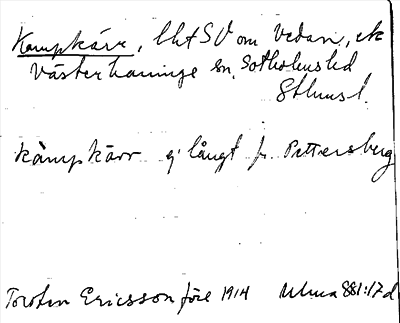 Kampkärr, lht SV om Vedan, ek
Västerhaninge sn, Sotholms hd
Sthms l.
kämpkärr ej långt fr. Pettersberg
Torsten Ericsson före 1914 Ulma 881:17 d